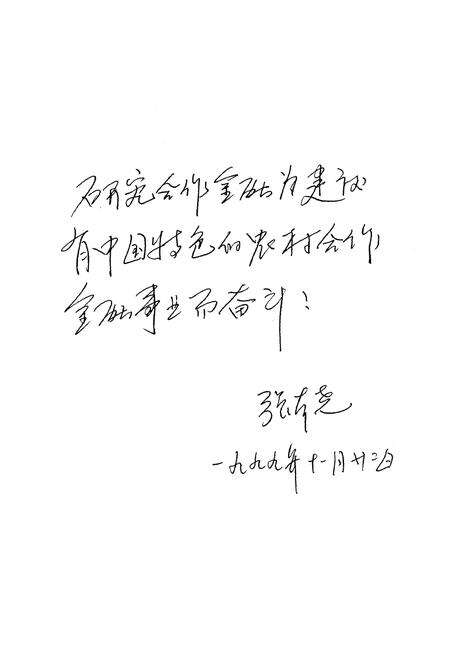 研究合作金融为建设
有中国特色的农村合作
金融事业而奋斗！
张本尧
一九九九年十一月廿二日